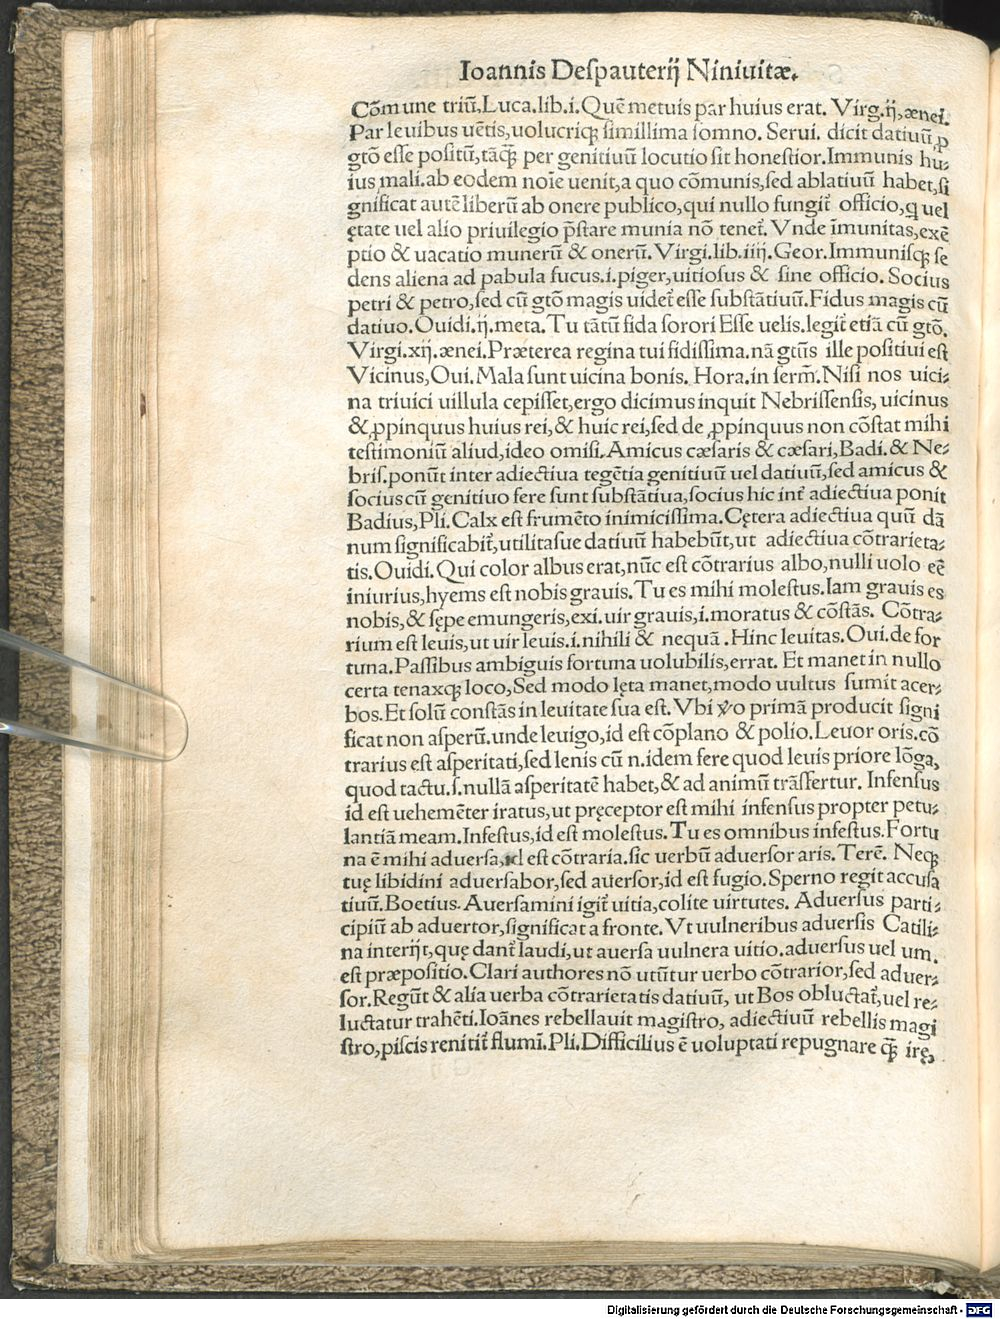 Ioannis Despauterij Niniuitæ.
Cōmune triū, Luca.lib.i. Quē metuis par huius erat. Virg.ij, ænei.
Par leuibus uētis, uolucriqꝫ simillima somno. Serui. dicit datiuū ꝓ
gtō esse positū, tāꝙ̃ per genitiuū locutio sit honestior. Immunis hu⸗
ius mali. ab eodem noīe uenit, a quo cōmunis, sed ablatiuū habet, si
gnificat autē liberū ab onere publico, qui nullo fungit̃ officio, q uel
ętate uel alio priuilegio p̄stare munia nō tenet̃. Vnde īmunitas, exē
ptio & uacatio munerū & onerū. Virgi.lib.iiij. Geor. Immunisqꝫ se
dens aliena ad pabula fucus.i.piger, uitiosus & sine officio. Socius
petri & petro, sed cū gtō magis uidet̃ esse substātiuū. Fidus magis cū
datiuo. Ouidi.ij.meta. Tu tātū fida sorori Esse uelis. legit̃ etiā cū gtō.
Virgi.xij.ænei. Præterea regina tui fidissima. nā gtūs ille positiui est
Vicinus, Oui. Mala sunt uicina bonis. Hora. in serm̄. Nisi nos uici⸗
na triuici uillula cepisset, ergo dicimus inquit Nebrissensis, uicinus
& ꝓpinquus huius rei, & huic rei, sed de ꝓpinquus non cōstat mihi
testimoniū aliud, ideo omisi. Amicus cæsaris & cæsari, Badi. & Ne⸗
bris. ponūt inter adiectiua tegētia genitiuū uel datiuū, sed amicus &
socius cū genitiuo fere sunt substātiua, socius hic int̃ adiectiua ponit
Badius, Pli. Calx est frumēto inimicissima. Cętera adiectiua quū dā
num significabit̃, utilitasue datiuū habebūt, ut adiectiua cōtrarieta⸗
tis. Ouidi. Qui color albus erat, nūc est cōtrarius albo, nulli uolo eē
iniurius, hyems est nobis grauis. Tu es mihi molestus. Iam grauis es
nobis, & sępe emungeris, exi. uir grauis, i. moratus & cōstās. Cōtra⸗
rium est leuis, ut uir leuis.i.nihili & nequā. Hinc leuitas. Oui. de for
tuna. Passibus ambiguis fortuna uolubilis, errat. Et manet in nullo
certa tenaxqꝫ loco, Sed modo lęta manet, modo uultus sumit acer⸗
bos. Et solū constās in leuitate sua est. Vbi v̄o primā producit signi
ficat non asperū. unde leuigo, id est cōplano & polio. Leuor oris. cō
trarius est asperitati, sed lenis cū n. idem fere quod leuis priore lōga,
quod tactu.s.nullā asperitatē habet, & ad animū trāsfertur. Infensus
id est uehemēter iratus, ut pręceptor est mihi infensus propter petu⸗
lantiā meam. Infestus, id est molestus. Tu es omnibus infestus. Fortu
na ē mihi aduersa, id est cōtraria. sic uerbū aduersor aris. Terē. Neqꝫ
tuę libidini aduersabor, sed auersor, id est fugio. Sperno regit accusa
tiuū. Boetius. Auersamini igit̃ uitia, colite uirtutes. Aduersus parti⸗
cipiū ab aduertor, significat a fronte. Vt uulneribus aduersis Catili⸗
na interijt, quę dant̃ laudi, ut auersa uulnera uitio. aduersus uel um.
est præpositio. Clari authores nō utūtur uerbo cōtrarior, sed aduer⸗
sor. Regūt & alia uerba cōtrarietatis datiuū, ut Bos obluctat̃, uel re⸗
luctatur trahēti. Ioānes rebellauit magistro, adiectiuū rebellis magi
stro, piscis renitit̃ flumī. Pli. Difficilius ē uoluptati repugnare ꝙ̃ irę,
Digitalisierung gefördert durch die Deutsche Forschungsgemeinschaft - DFG